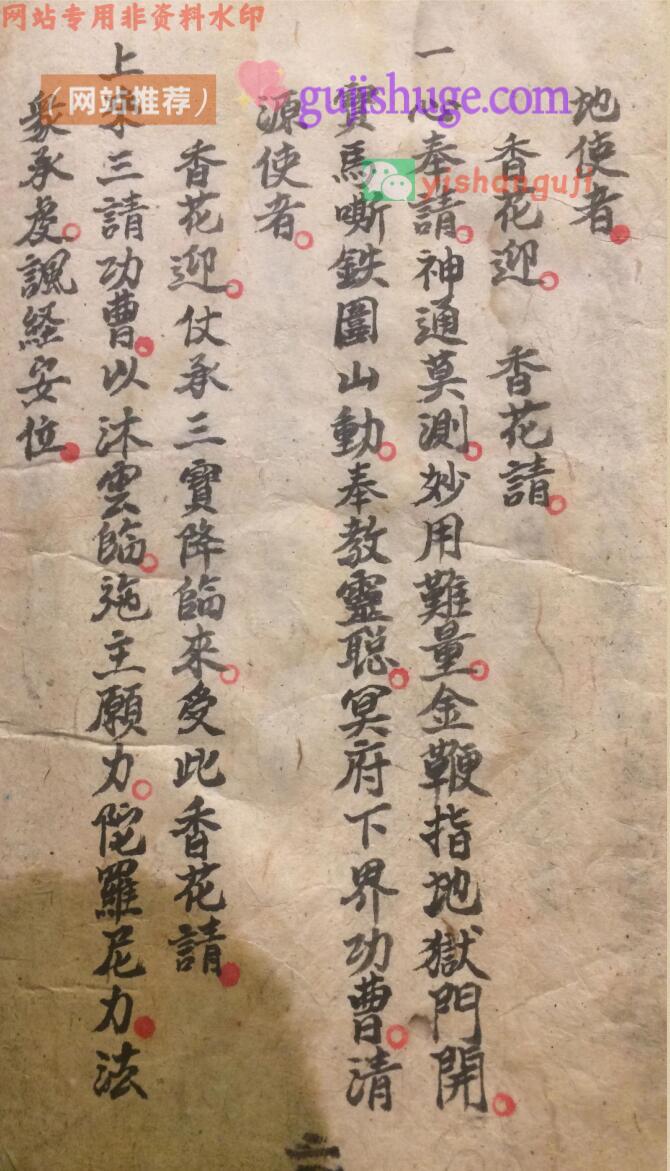 网站专用非资料水印
（网站推荐）
gujishuge.com
yishanguji
地使者。
香花迎。香花請。
一心奉請。神通莫測。妙用難量。金鞭指地獄門開。
寶馬嘶鉄圍山動。奉教靈聡。冥府下界功曹。清
源使者。
香花迎。仗承三寶降臨來。受此香花請。
上来三請功曹。以沐雲臨。施主願力。陀羅尼力。法
衆承虔。諷経安位。
二